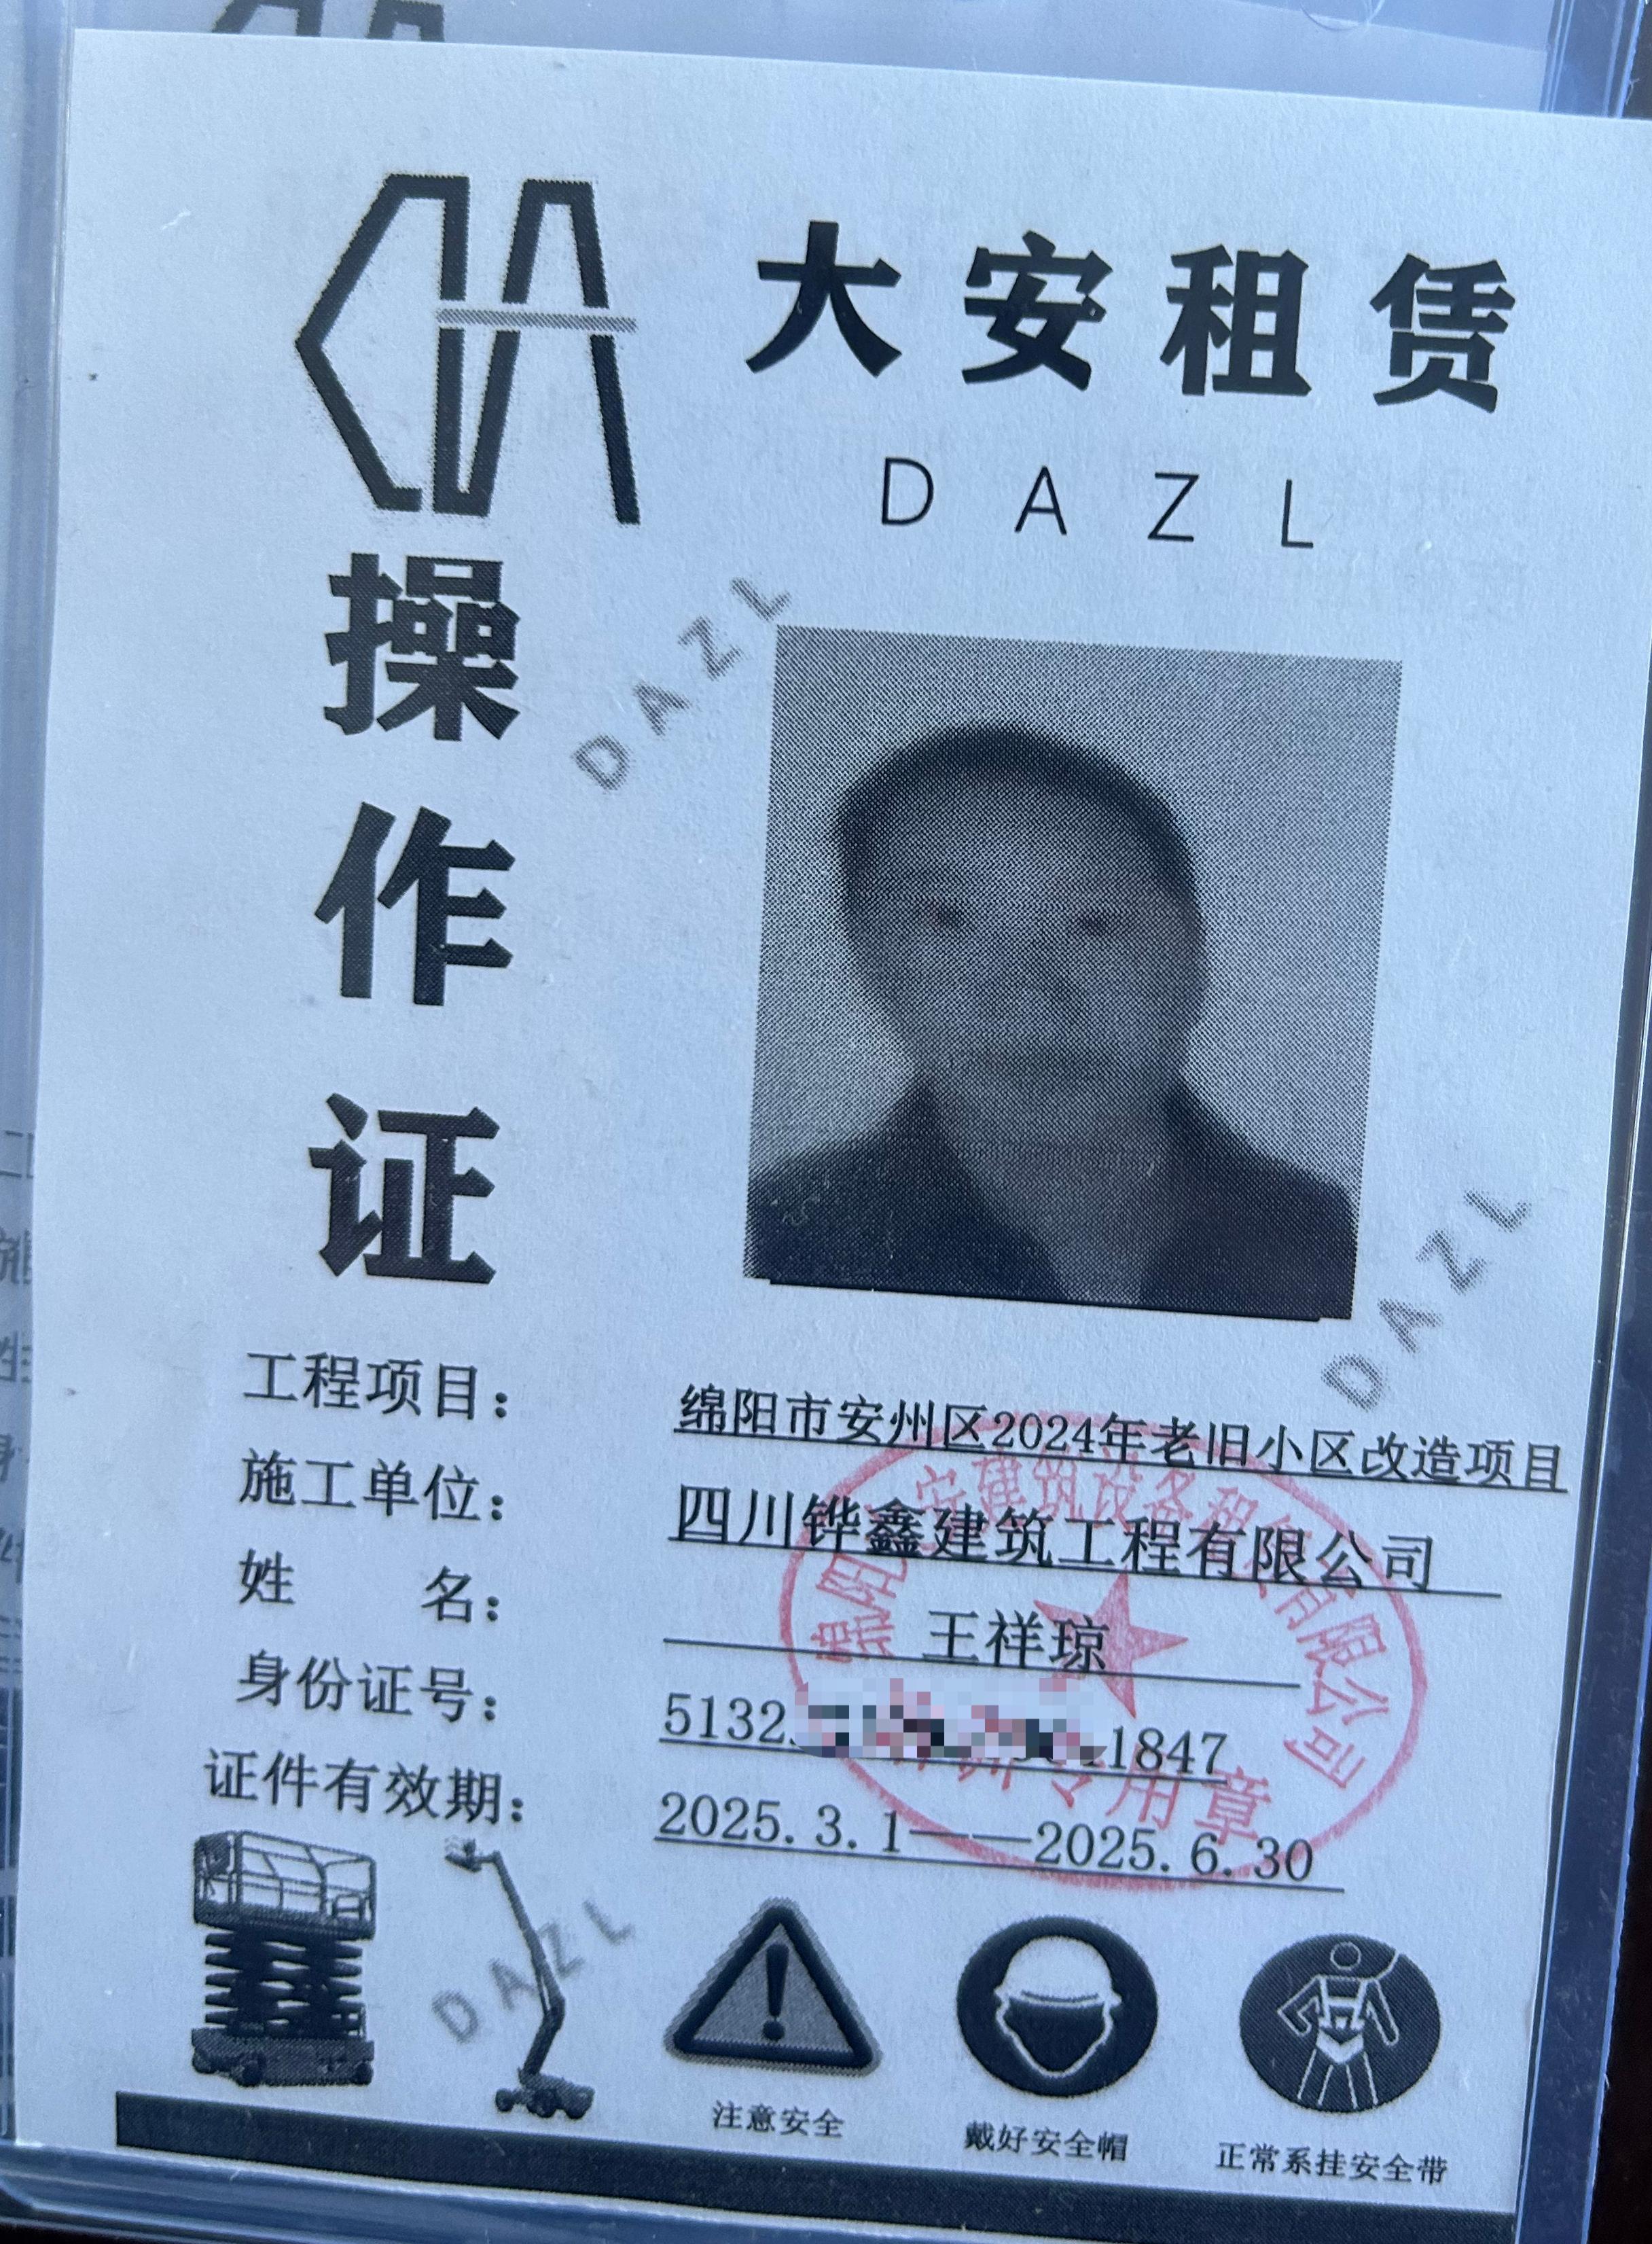 大安租赁
DAZL
操作证
DAZL
DAZL
工程项目：绵阳市安州区2024年老旧小区改造项目
施工单位：四川铧鑫建筑工程有限公司
姓名：王祥琼
身份证号：5132 1847
证件有效期：2025.3.1——2025.6.30
绵阳 安建筑设备租赁有限公司
专用章
DAZL
注意安全
戴好安全帽
正常系挂安全带